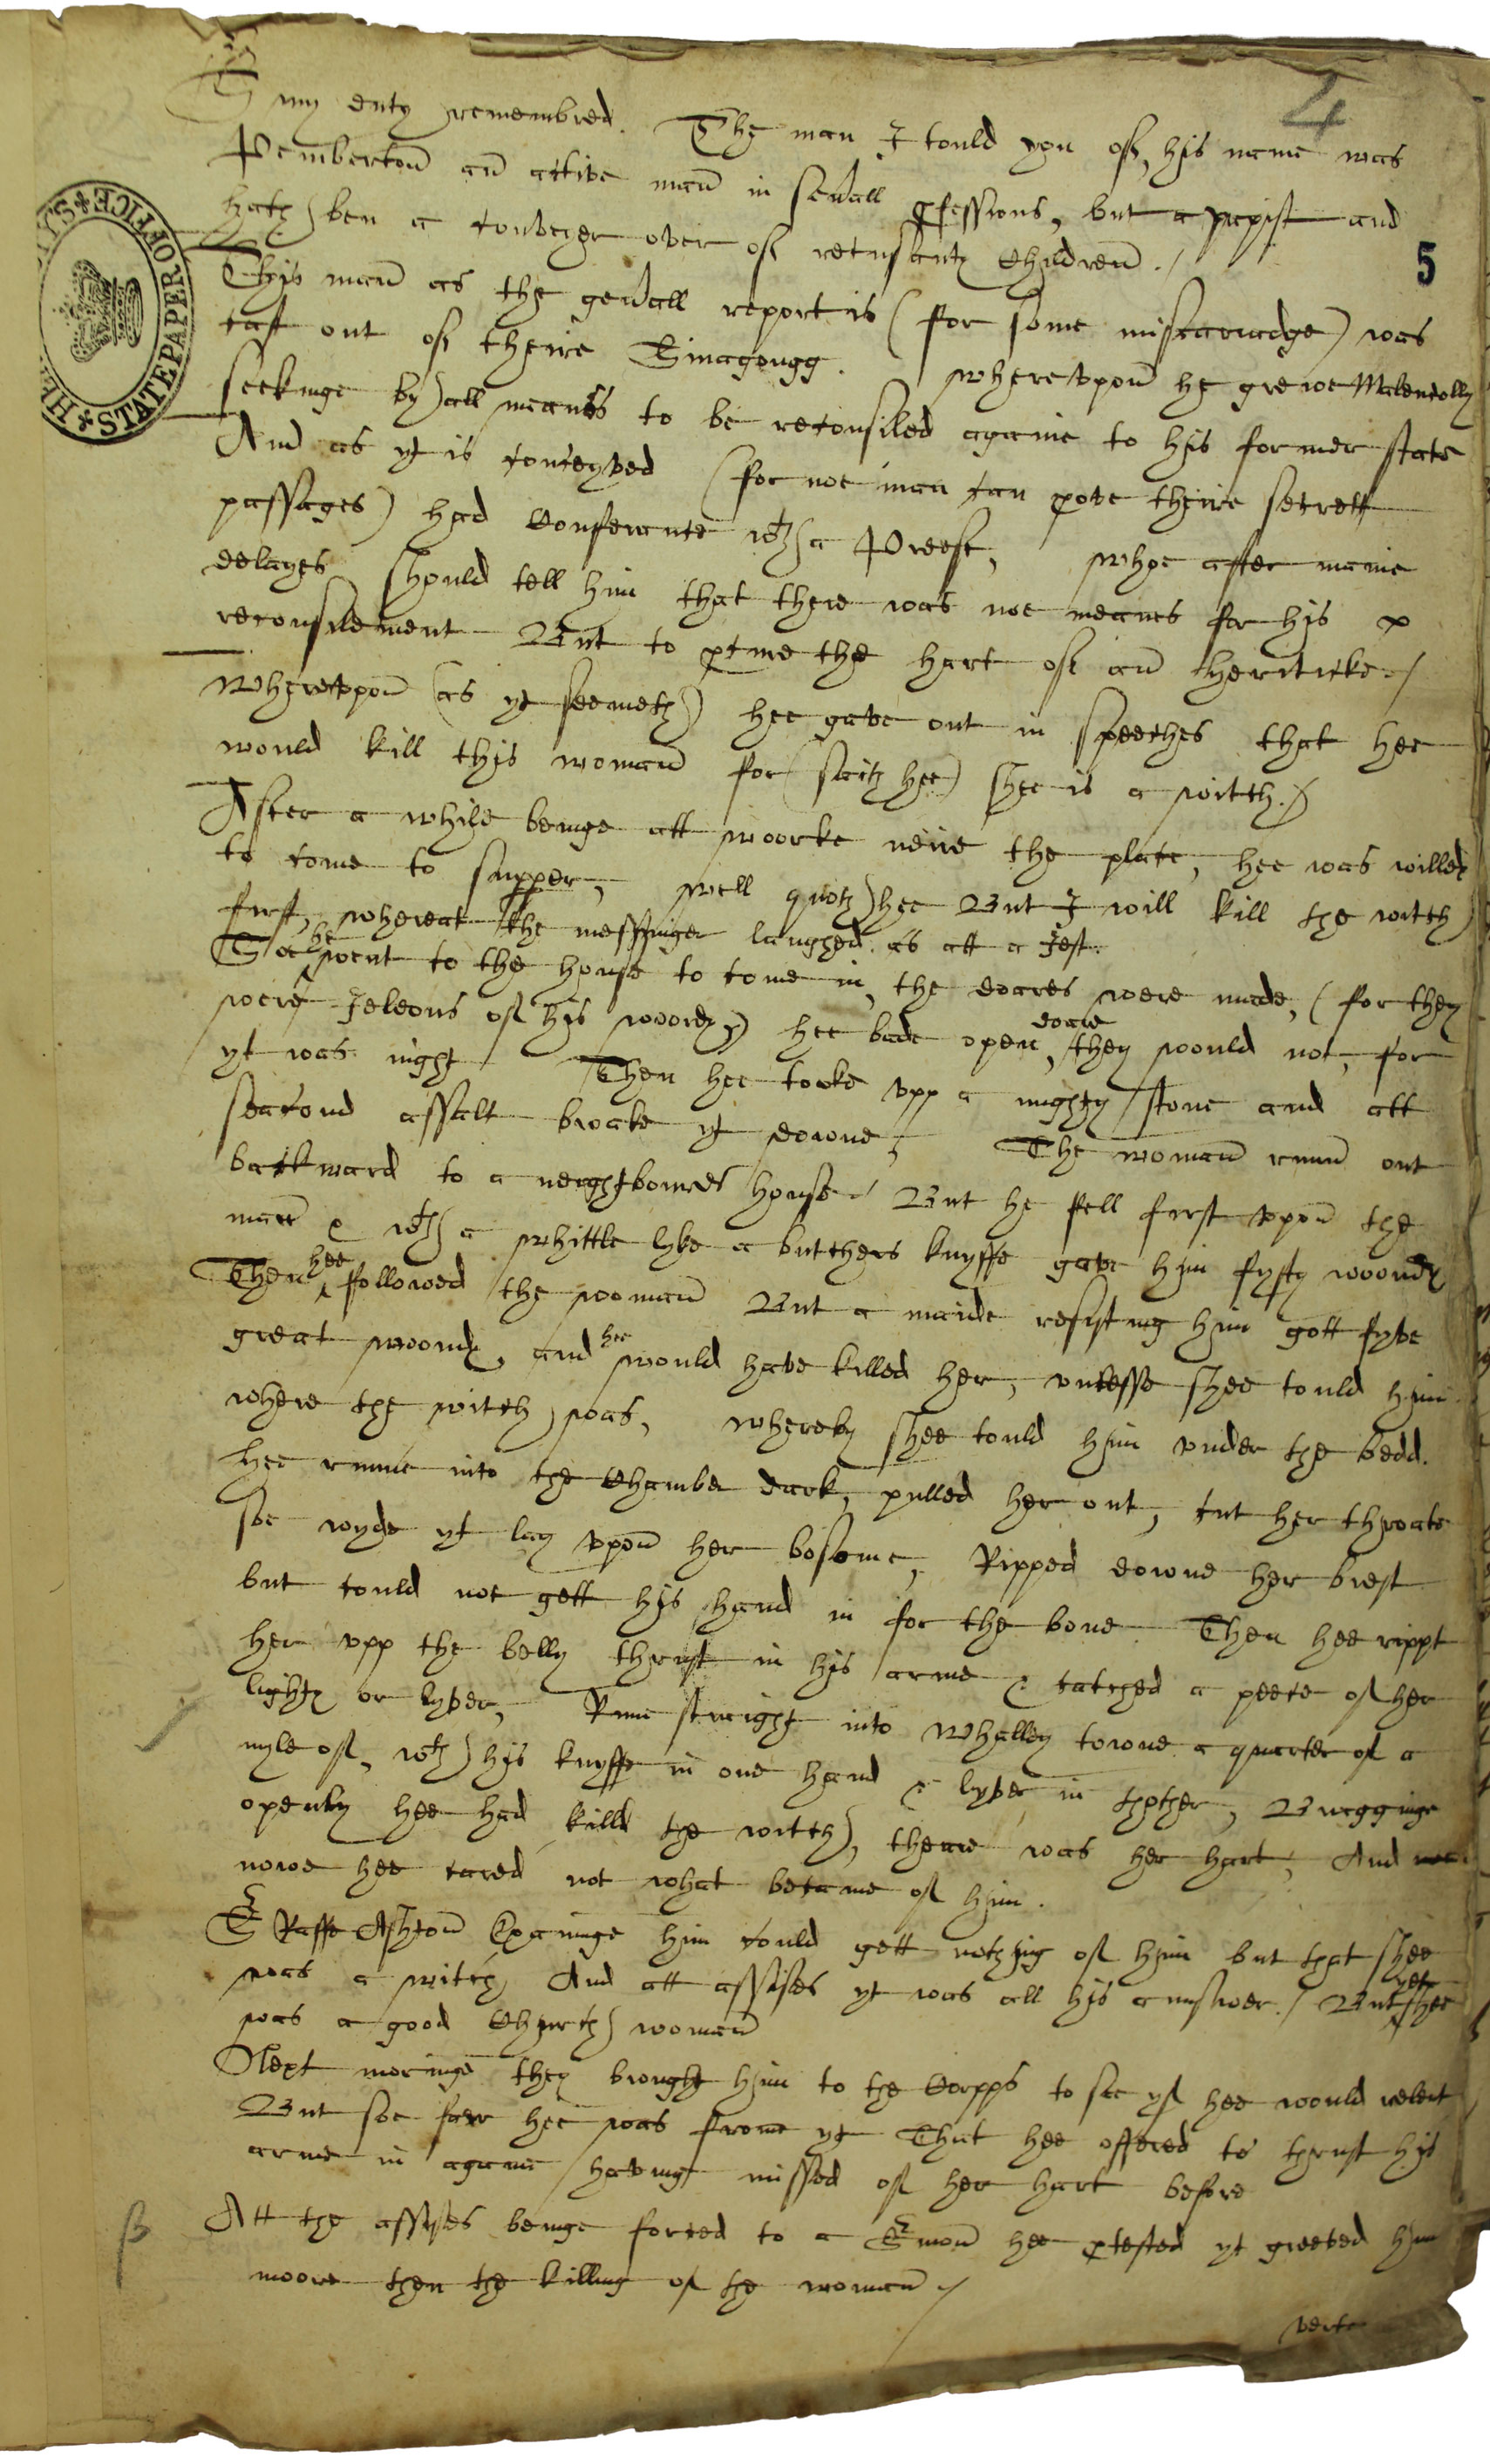 Sr my duty remembred. The man I tould you of, his name was
4
Pemberton an active man in seuall pfessions, but a papist and
hath ben a conveyer over of recusants Children./
5
This man as the genall report is (for some miscariadge) was
cast out of theire Sinagougg. Wherevpon he grewe Malencolly
seekinge by all meanes to be reconsiled againe to his former state
And as yt is conceyved (for noe man can prove theire secrett
passages) had Conferance wth a Preest, Whoe after manie
delayes should tell him that there was noe meanes for his
reconsilement But to pcure the hart of an heriticke./
Wherevpon (as yt seemeth) hee gave out in speeches that hee
would kill this woman for (saith hee) shee is a witch./
After a while beinge att woorke neire the place, hee was willed
to come to supper, well quoth hee But I will kill the witch
first, whereat the messinger laughed as att a Jest.
Soe he went to the house to come in, the doores were made, (for they
were Jeleous of his words) hee bade open doare, they would not, for
yt was night Then hee tooke vpp a mighty stone and att
seacond assalt brake yt downe, The woman runn out
backward to a neaghboures house. But he fell first vpon the
man & wth a whittle lyke a butchers knyffe gave him fyfty woonds
Then hee followed the wooman But a maide resisting him gott fyve
great woonds, and hee would have killed her, vnlesse shee tould him
where the witch was, whereby shee tould him vnder the bedd.
hee runne into the Chamber dark, pulled her out, cut her throate
soe wyde yt lay vpon her bosome, Ripped downe her brest
but could not gett his hand in for the bone Then hee rippt
her vpp the belly thrust in his arme & catched a peece of her
lights or lyver, Runn straight into Whalley towne a quarter of a
myle of, wth his knyffe in one hand & lyver in thother, Bragginge
openly hee had killd the witch, theare was her hart, And
nowe hee cared not what became of him.
Sr Raffe Ashton Examinge him could gett nothing of him but that shee
was a witch, And att assises yt was all his answer./ But yet shee
was a good Church woman
Next morninge they brought him to the Corpps to see yf hee would relent
But soe farr hee was from yt That hee offered to thrust his
arme in againe having missed of her hart before
Att the assyses beinge forced to a Sermon hee ptested yt greeved him
moore then the killing of the woman./
verte
STATE PAPER OFFICE